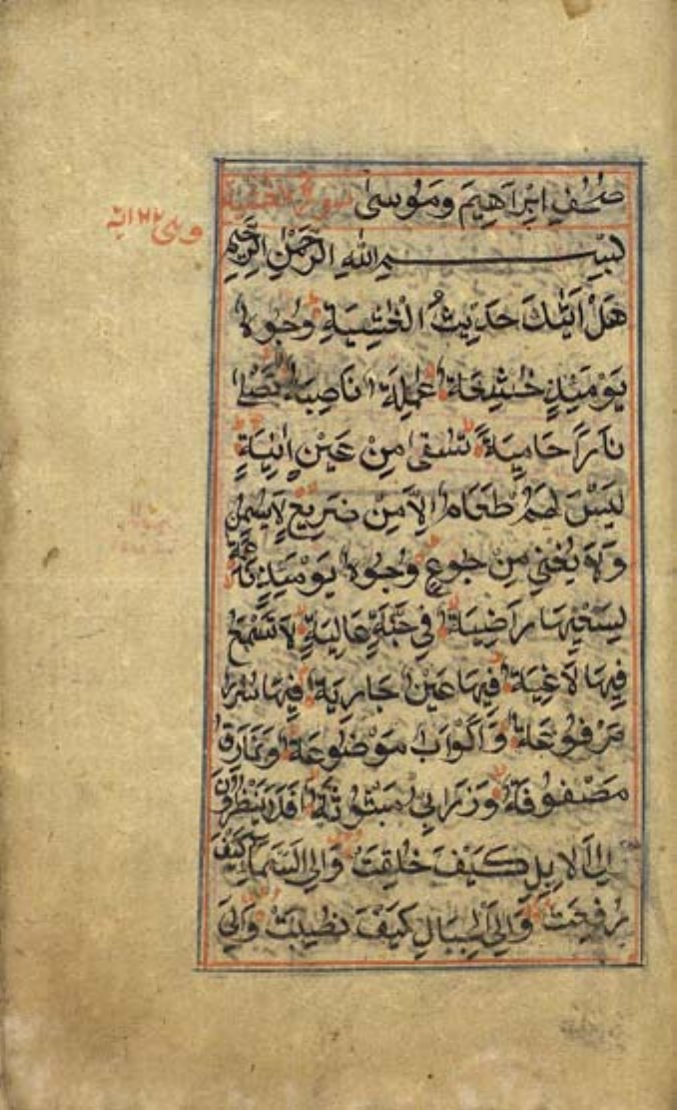 صُحُفِ اِبْرَاهِيْمَ وَمُوْسٰى سورة الغشية
بِسْمِ اللّٰهِ الرَّحْمٰنِ الرَّحِيْمِ
هَلْ اَتٰىكَ حَدِيْثُ الْغٰشِيَةِ وُجُوْهٌ
يَوْمَئِذٍ خٰشِعَةٌ عَامِلَةٌ نَاصِبَةٌ تَصْلٰى
نَارًا حَامِيَةً تُسْقٰى مِنْ عَيْنٍ اٰنِيَةٍ
لَيْسَ لَهُمْ طَعَامٌ اِلَّا مِنْ ضَرِيْعٍ لَايُسْمِنُ
وَلَا يُغْنِيْ مِنْ جُوْعٍ وُجُوْهٌ يَوْمَئِذٍ نَاعِمَةٌ
لِسَعْيِهَا رَاضِيَةٌ فِيْ جَنَّةٍ عَالِيَةٍ لَا تَسْمَعُ
فِيْهَا لَاغِيَةً فِيْهَا عَيْنٌ جَارِيَةٌ فِيْهَا سُرُرٌ
مَرْفُوْعَةٌ وَاَكْوَابٌ مَوْضُوْعَةٌ وَنَمَارِقُ
مَصْفُوْفَةٌ وَزَرَابِيُّ مَبْثُوْثَةٌ اَفَلَا يَنْظُرُوْنَ
اِلَى الْاِبِلِ كَيْفَ خُلِقَتْ وَاِلَى السَّمَاءِ كَيْفَ
رُفِعَتْ وَاِلَى الْجِبَالِ كَيْفَ نُصِبَتْ وَاِلَى